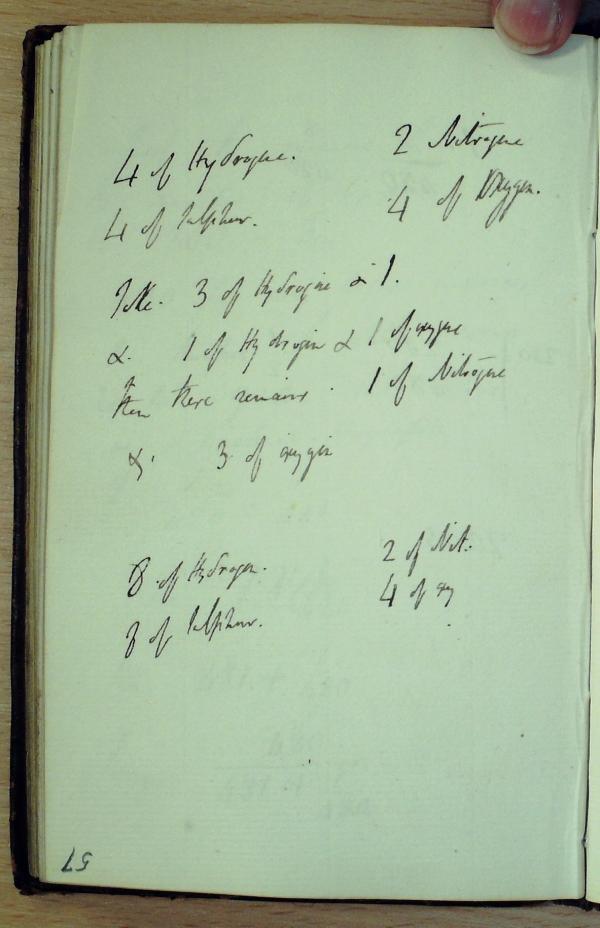 4 of Hydrogene. 2 Nitrogene
4 of Sulphur. 4 of Oxygen.
Take. 3 of Hydrogene & 1.
&. 1 of Hydrogin & 1 of oxygene
then there remains. 1 of Nitrogene
&. 3 of oxygin
8 of Hydrogen. 2 of Nit.
8 of Sulphur. 4 of oxy
57